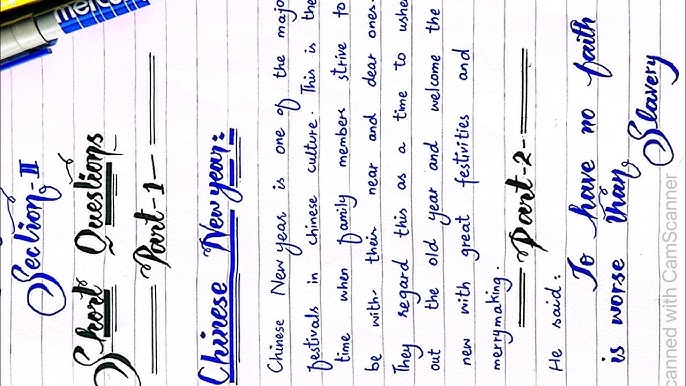 Section-II
Short Questions
Part-1
Chinese New year:
Chinese New year is one of the major
festivals in chinese culture. This is the
time when family members strive to
be with their near and dear ones.
They regard this as a time to usher
out the old year and welcome the
new with great festivities and
merrymaking.
Part-2
He said:
To have no faith
is worse than
Slavery
canned with CamScanner